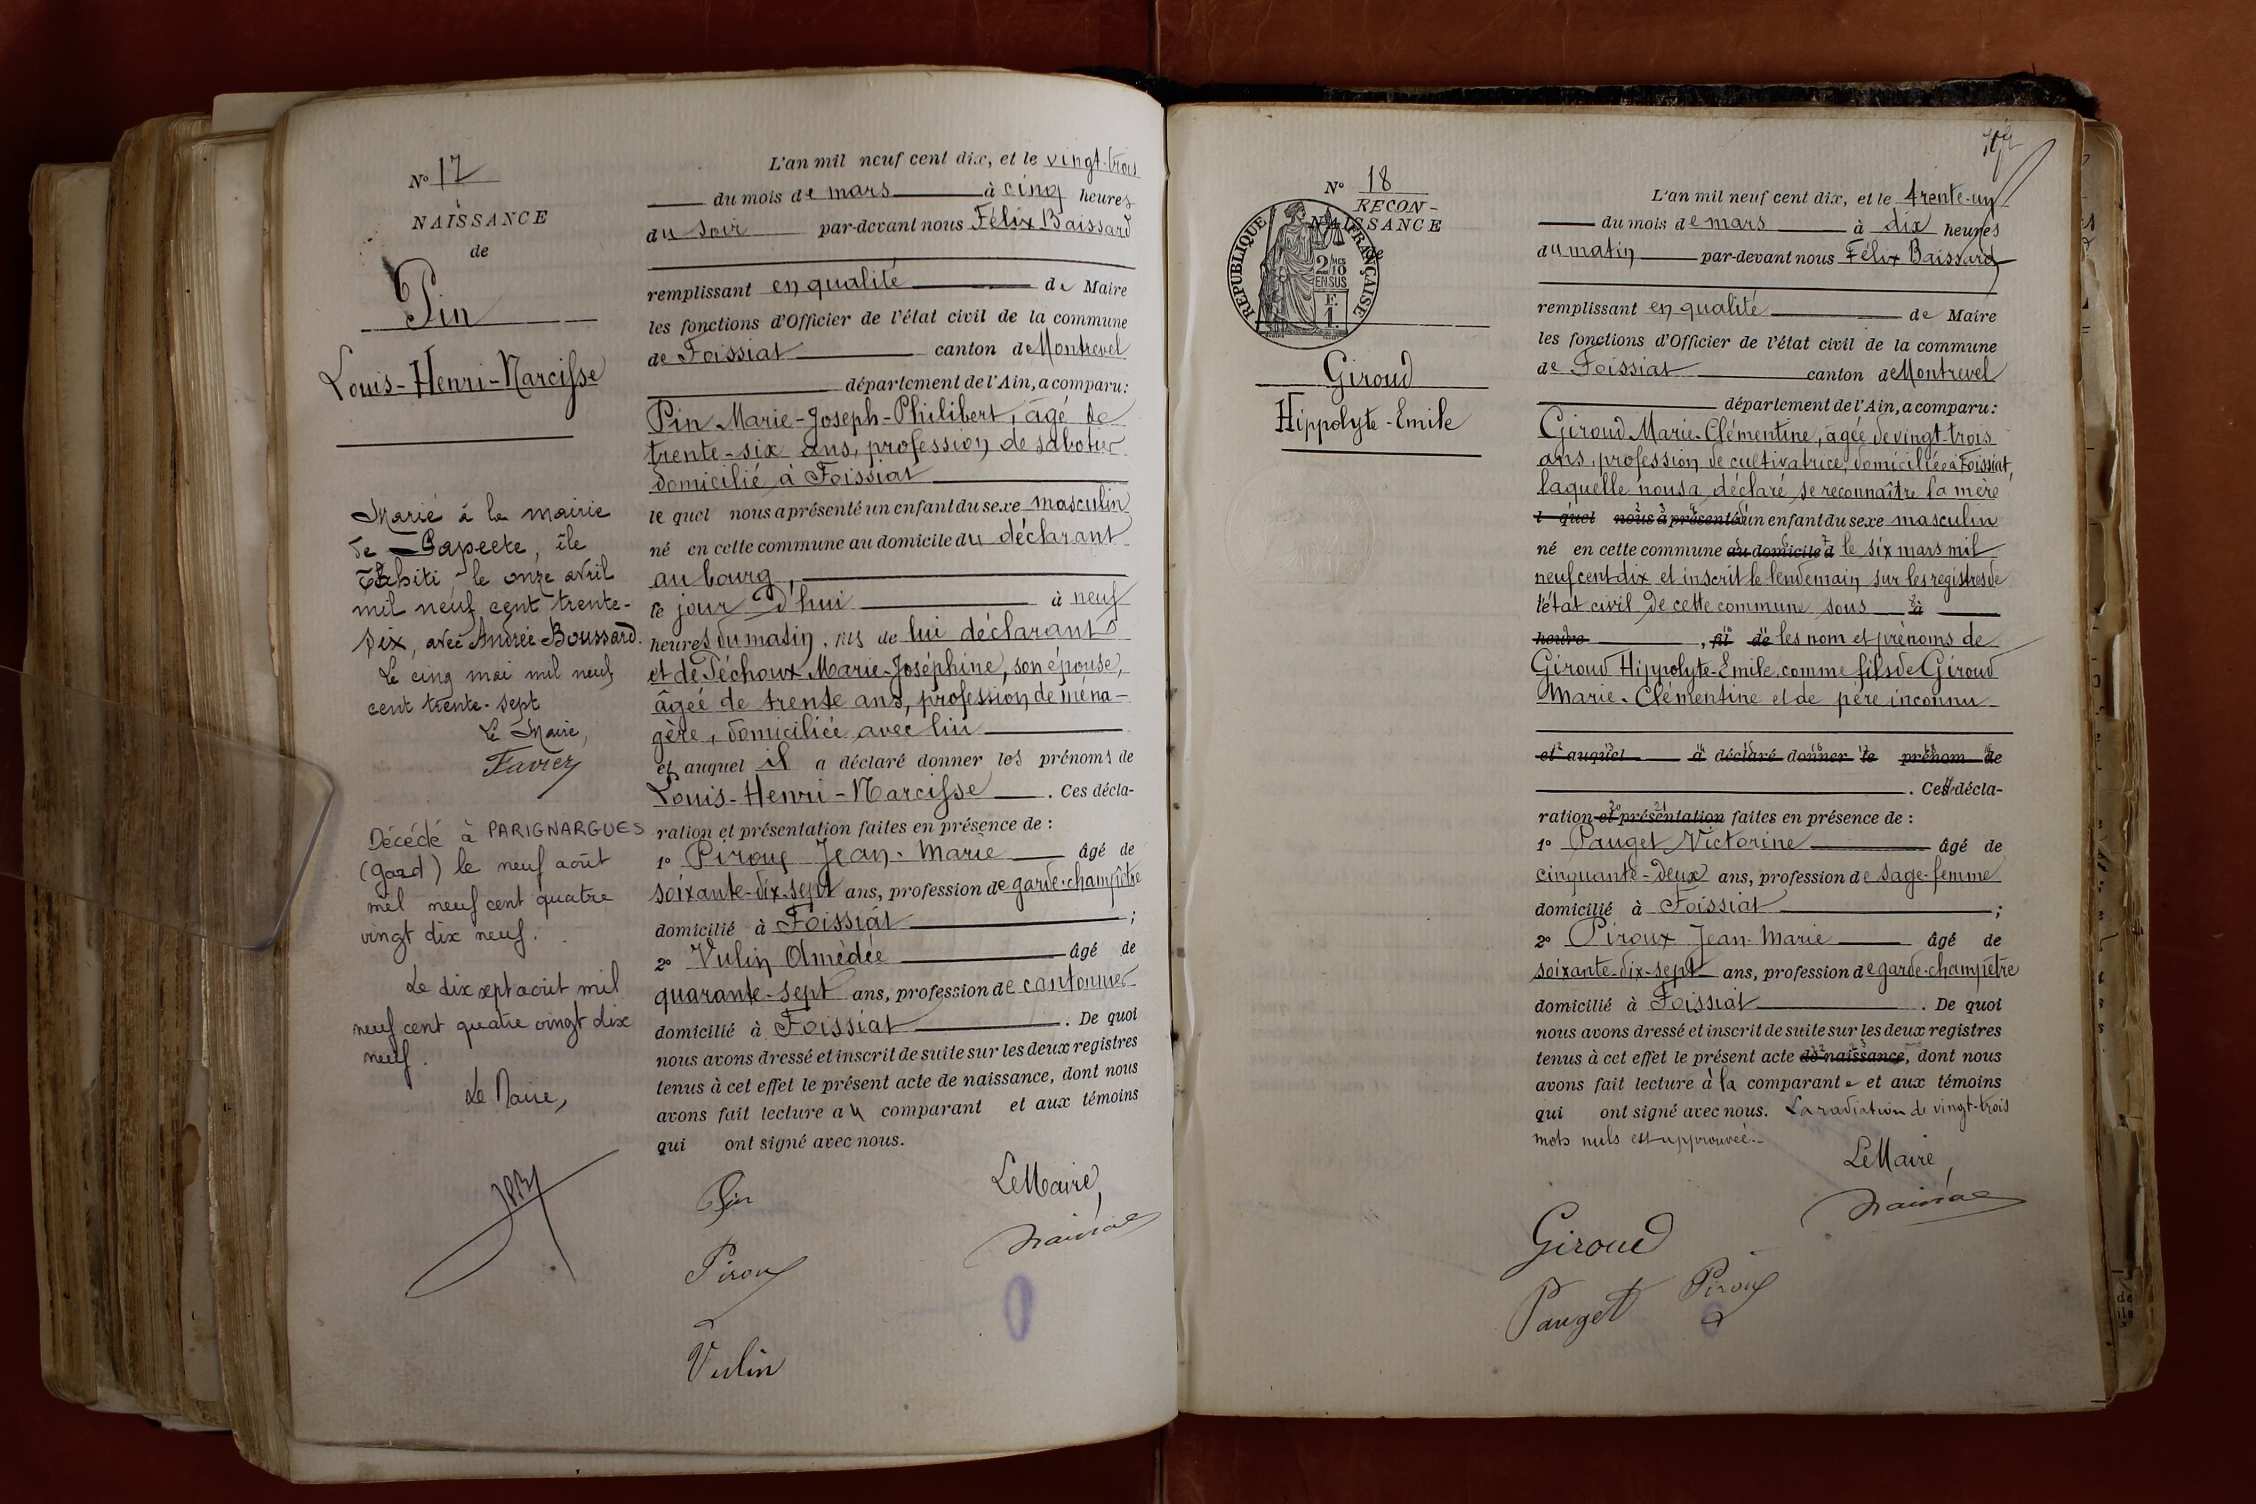 N° 17
NAISSANCE
de
Pin
Louis-Henri-Narcisse
Marié à la mairie
de Papeete, île
Tahiti le onze avril
mil neuf cent trente-
six, avec Andrée Boussard.
Le cinq mai mil neuf
cent trente-sept
Le Maire,
Favier
Décédé à PARIGNARGUES
(Gard) le neuf août
mil neuf cent quatre
vingt dix neuf.
Le dix sept août mil
neuf cent quatre vingt dix
neuf.
Le Maire,
L'an mil neuf cent dix, et le vingt-trois
du mois de mars à cinq heures
du soir par-devant nous Félix Baissard
remplissant en qualité de Maire
les fonctions d'Officier de l'état civil de la commune
de Foissiat canton de Montrevel
département de l'Ain, a comparu:
Pin Marie-Joseph-Philibert, âgé de
trente-six ans, profession de sabotier
domicilié à Foissiat
le quel nous a présenté un enfant du sexe masculin
né en cette commune au domicile du déclarant
au bourg,
le jour d'hui à neuf
heures du matin, fils de lui déclarant
et de Péchoux Marie-Joséphine, son épouse,
âgée de trente ans, profession de ména-
gère, domiciliée avec lui
et auquel il a déclaré donner les prénoms de
Louis-Henri-Narcisse. Ces décla-
ration et présentation faites en présence de :
1° Piroux Jean-Marie âgé de
soixante-dix-sept ans, profession de garde-champêtre
domicilié à Foissiat ;
2° Vulin Amédée âgé de
quarante-sept ans, profession de cantonnier
domicilié à Foissiat . De quoi
nous avons dressé et inscrit de suite sur les deux registres
tenus à cet effet le présent acte de naissance, dont nous
avons fait lecture au comparant et aux témoins
qui ont signé avec nous.
Pin
Le Maire,
Piroux
Baissard
Vulin
N° 18
RECON-
NAISSANCE
de
RÉPUBLIQUE FRANÇAISE
2/10
EN SUS
F.
1.
Giroud
Hippolyte-Emile
L'an mil neuf cent dix, et le trente-un
du mois de mars à dix heures
du matin par-devant nous Félix Baissard
remplissant en qualité de Maire
les fonctions d'Officier de l'état civil de la commune
de Foissiat canton de Montrevel
département de l'Ain, a comparu:
Giroud Marie-Clémentine, âgée de vingt-trois
ans, profession de cultivatrice, domiciliée à Foissiat,
laquelle nous a déclaré se reconnaître la mère
l quel nous a présenté d'un enfant du sexe masculin
né en cette commune au domicile d le six mars mil
neuf cent dix et inscrit le lendemain sur les registres de
l'état civil de cette commune sous à
heure , fil de les nom et prénoms de
Giroud Hippolyte-Emile comme fils de Giroud
Marie-Clémentine et de père inconnu
et auquel a déclaré donner le prénom de
. Ces décla-
ration et présentation faites en présence de :
1° Pauget Victorine âgé de
cinquante-deux ans, profession de sage-femme
domicilié à Foissiat ;
2° Piroux Jean-Marie âgé de
soixante-dix-sept ans, profession de garde-champêtre
domicilié à Foissiat . De quoi
nous avons dressé et inscrit de suite sur les deux registres
tenus à cet effet le présent acte de naissance, dont nous
avons fait lecture à la comparante et aux témoins
qui ont signé avec nous. La radiation de vingt-trois
mots nuls est approuvée.
Le Maire,
Baissard
Giroud
Pauget
Piroux